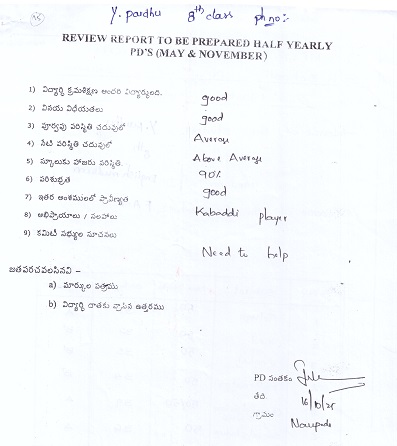 Y. pardhu 8th class ph no:-
REVIEW REPORT TO BE PREPARED HALF YEARLY
PD'S (MAY & NOVEMBER)
1) విద్యార్థి క్రమశిక్షణ అందరి విద్యార్థులది. good
2) వినయ విధేయతలు good
3) పూర్వపు పరిస్థితి చదువులో Average
4) నేటి పరిస్థితి చదువులో Above Average
5) స్కూలుకు హాజరు పరిస్థితి. 90%
6) పరిశుభ్రత good
7) ఇతర అంశములలో ప్రావీణ్యత Kabaddi player
8) అభిప్రాయాలు / సలహాలు
9) కమిటీ సభ్యుల సూచనలు Need to help
జతపరచవలసినవి –
a) మార్కుల పత్రము
b) విద్యార్థి దాతకు వ్రాసిన ఉత్తరము
PD సంతకం
తేది 16/10/25
గ్రామం Naupada